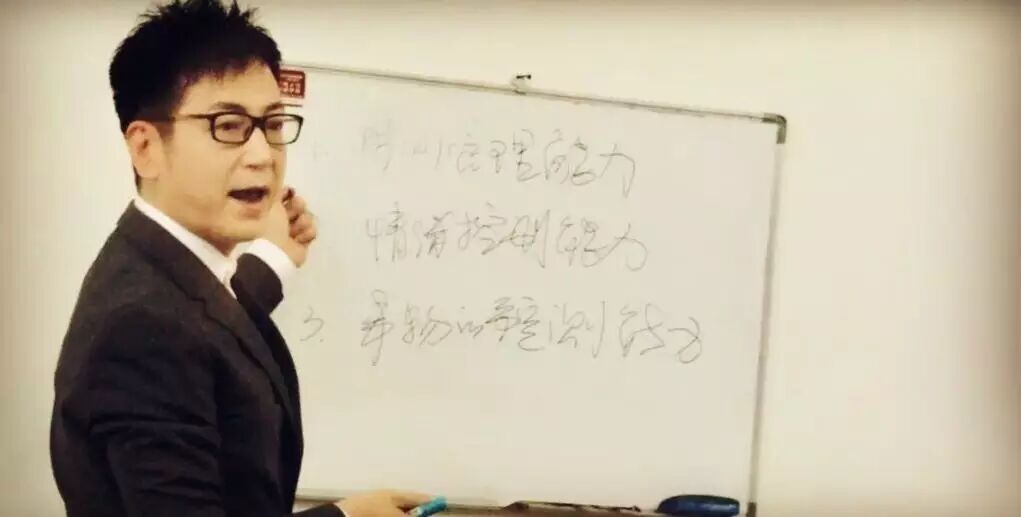 1. 时间管理能力
情绪控制能力
3. 事物的预测能力